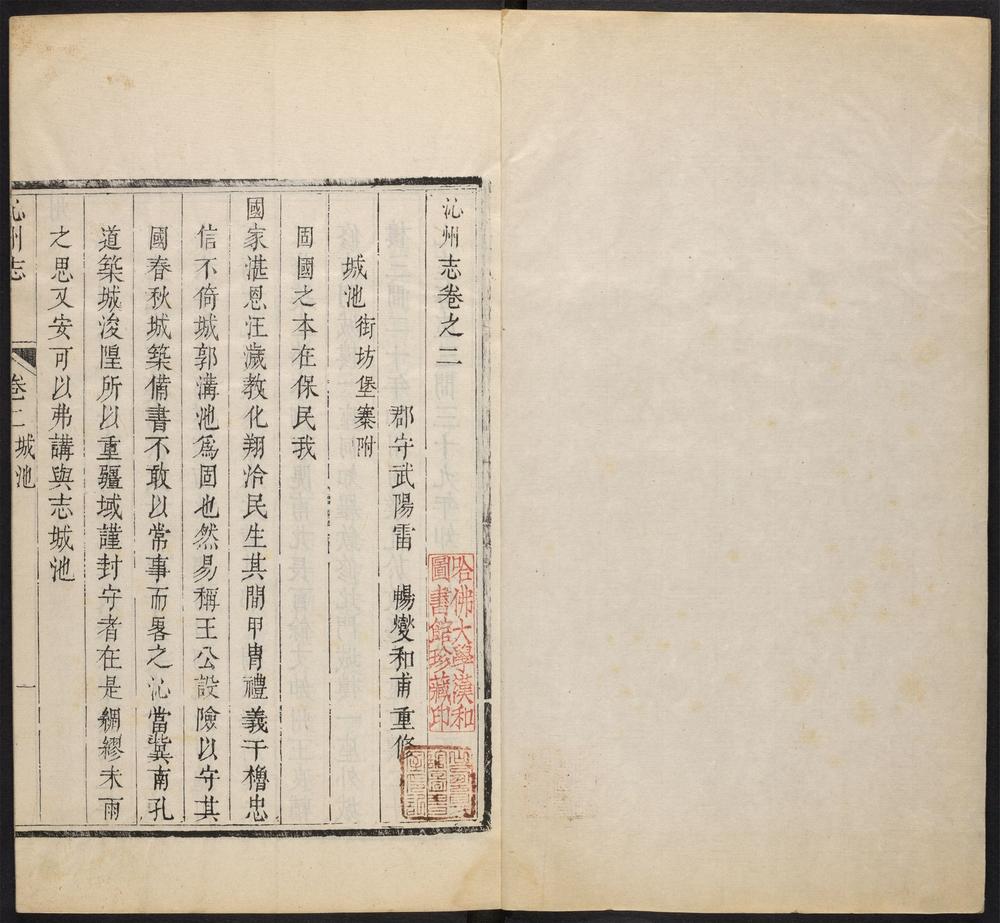 沁州志卷之二
郡守武陽雷 暢燮和甫重修
城池 街坊堡寨附
固國之本在保民我
國家湛恩汪濊教化翔洽民生其間甲胄禮義干櫓忠
信不倚城郭溝池爲固也然易稱王公設險以守其
國春秋城築備書不敢以常事而畧之沁當冀南孔
道築城浚隍所以重疆域謹封守者在是綢繆未雨
之思又安可以弗講與志城池
沁州志 卷二 城池 一
哈佛大學漢和
圖書館珍藏印